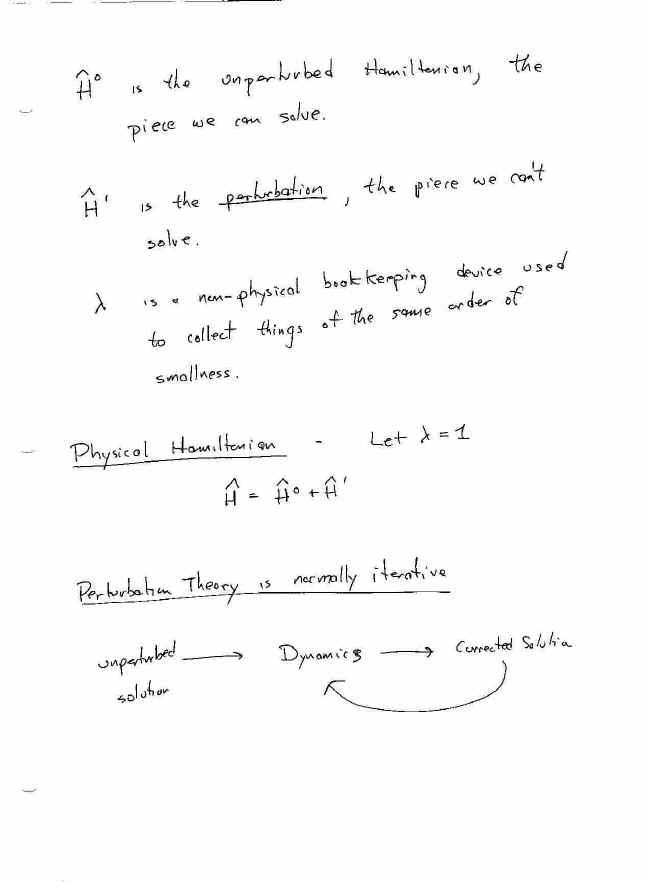 Ĥ° is the unperturbed Hamiltonian, the
piece we can solve.
Ĥ' is the perturbation, the piece we can't
solve.
λ is a non-physical bookkeeping device used
to collect things of the same order of
smallness.
Physical Hamiltonian - Let λ = 1
Ĥ = Ĥ° + Ĥ'
Perturbation Theory is normally iterative
unperturbed → Dynamics → Corrected Solution
solution